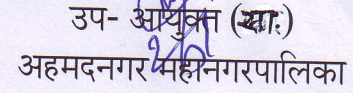 उप- आयुक्त (सा.)
अहमदनगर महानगरपालिका